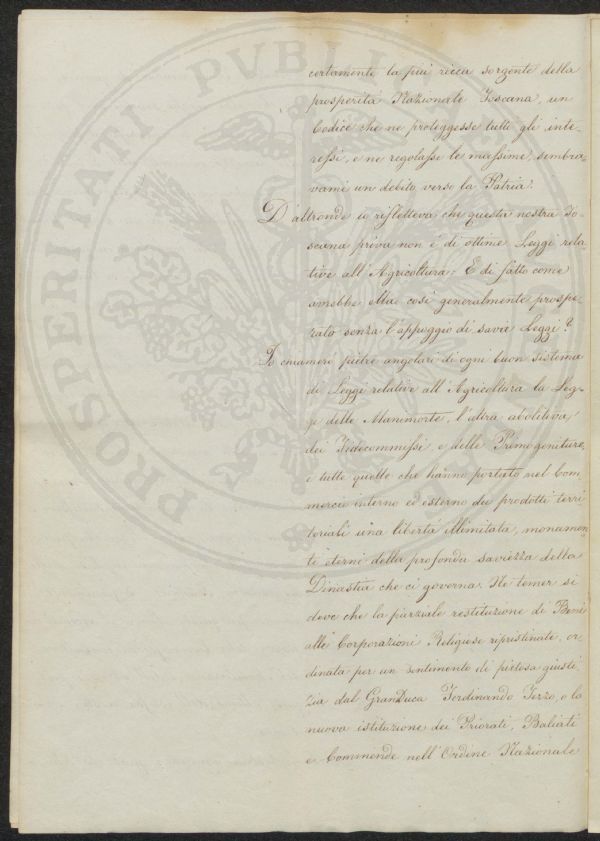 certamente la più ricca sorgente della
prosperità Nazionale Toscana, un
Codice che ne proteggesse tutti gli inte-
ressi, e ne regolasse le massime, sembra-
vami un debito verso la Patria.
D'altronde io rifletteva che questa nostra To-
scana priva non è di ottime Leggi rela-
tive all'Agricoltura; E di fatto come
avrebbe ella così generalmente prospe-
rato senza l'appoggio di savie Leggi?
Io chiamerò pietre angolari di ogni buon sistema
di Leggi relative all'Agricoltura la Leg-
ge delle Manimorte, l'altra abolitiva
dei Fidecommissi e delle Primogeniture,
e tutte quelle che hanno portato nel Com-
mercio interno ed esterno dei prodotti terri-
toriali una libertà illimitata, monumen-
ti eterni della profonda saviezza della
Dinastia che ci governa. Ne temer si
deve che la parziale restituzione di Beni
alle Corporazioni Religiose ripristinate, or-
dinata per un sentimento di pietosa giusti-
zia dal GranDuca Ferdinando Terzo, o la
nuova istituzione dei Priorati, Baliati
e Commende nell'Ordine Nazionale
PROSPERITATI PVBLI